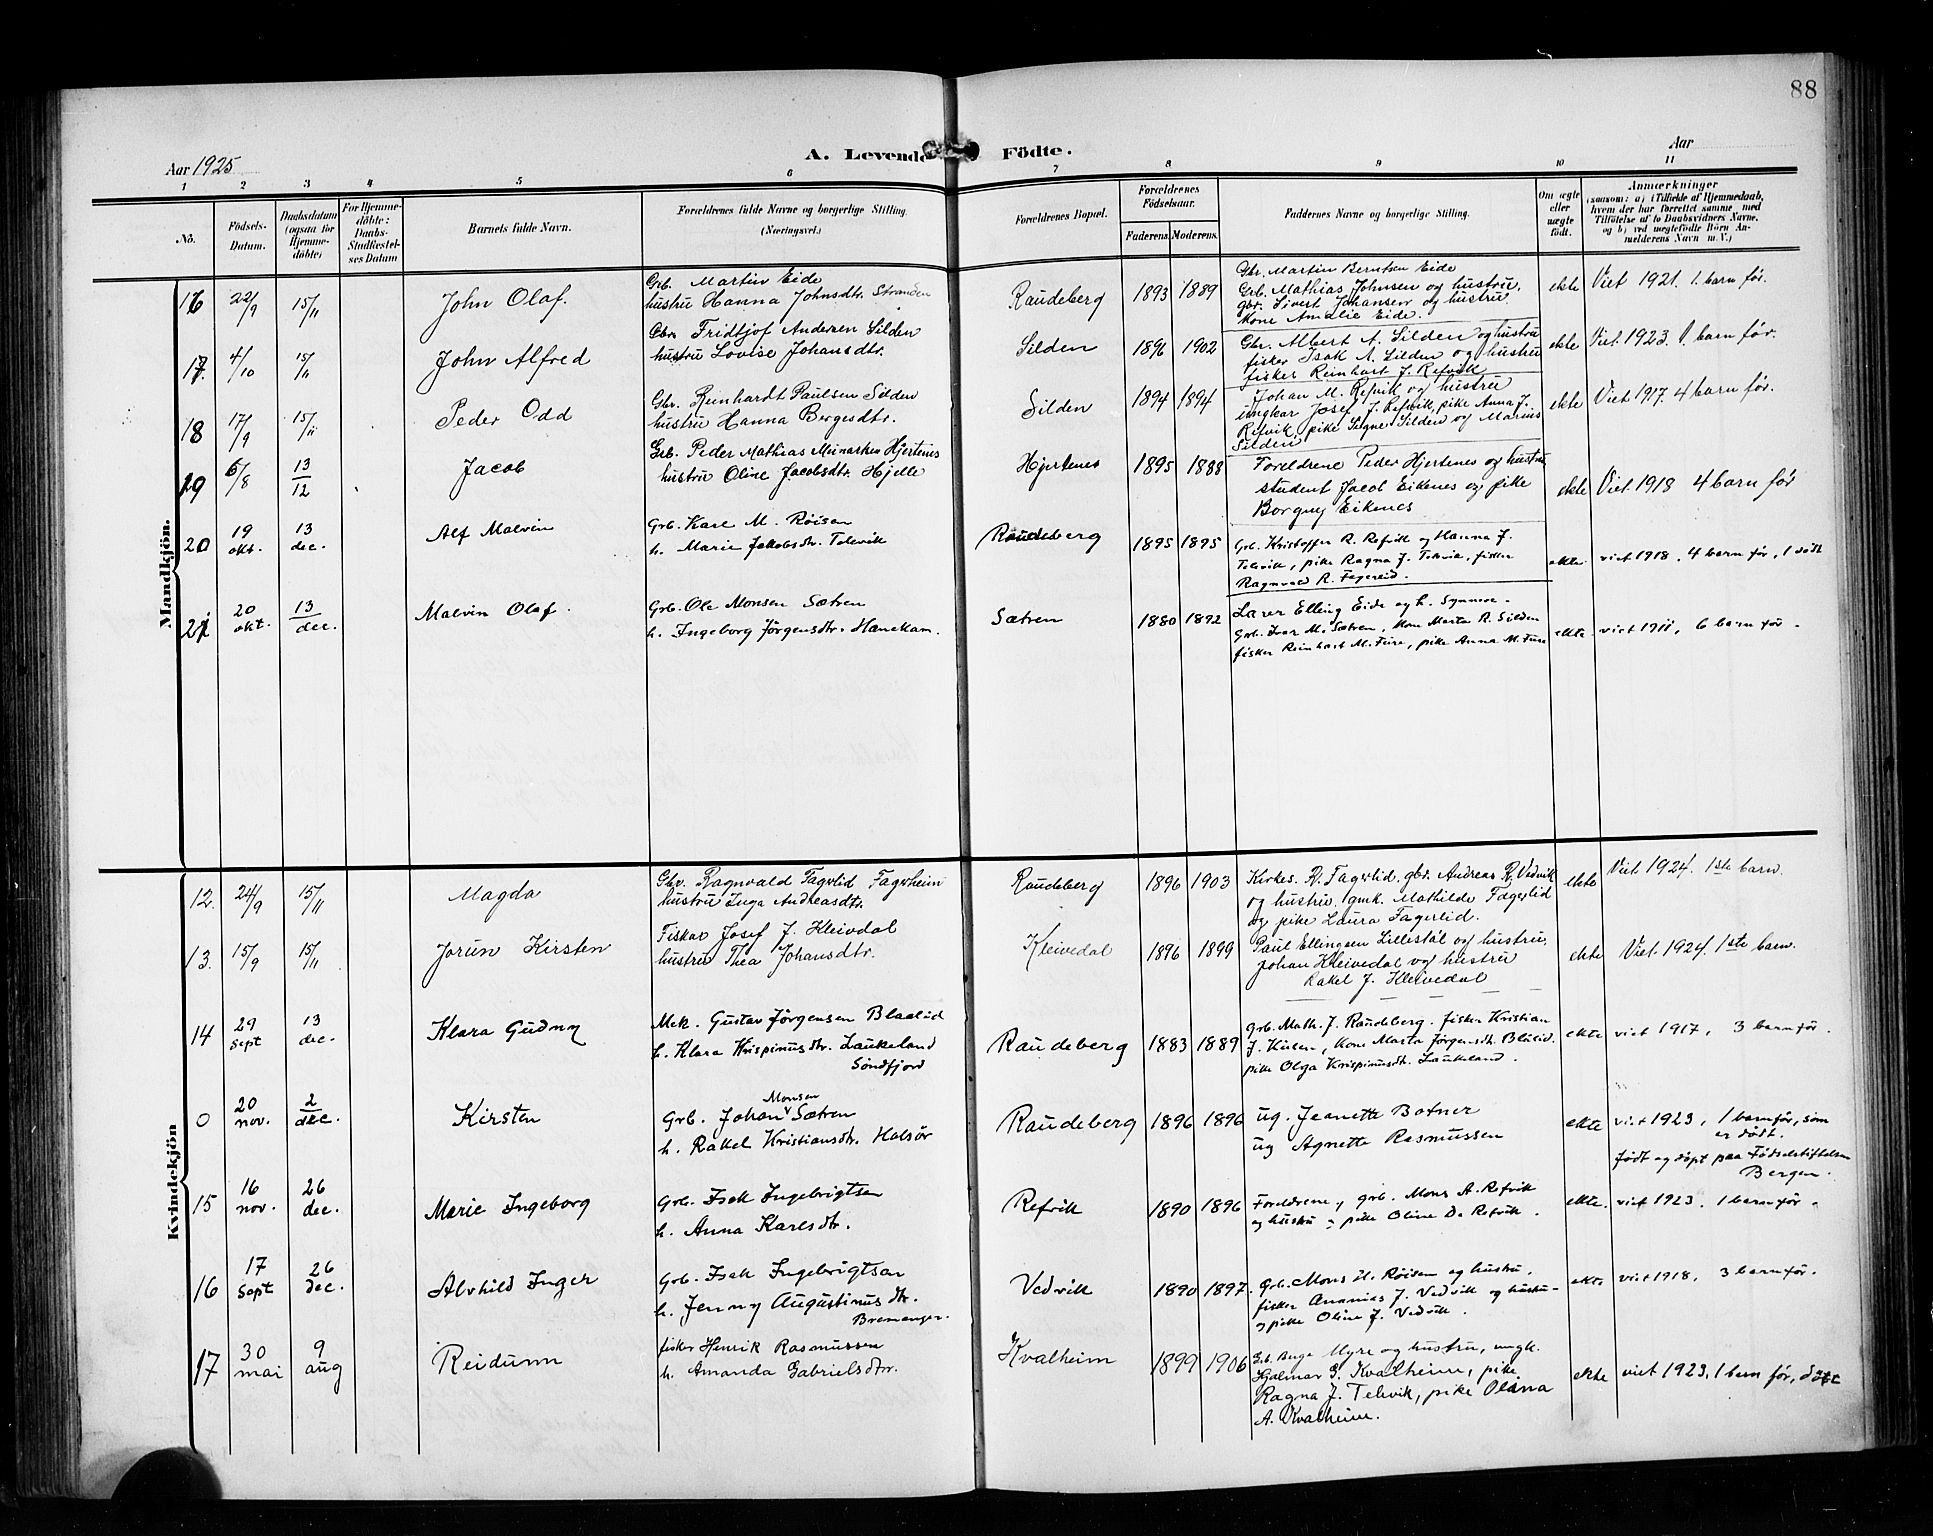 88
Aar 1925
A. Levende Födte.
Aar
1 2 3 4 5 6 7 8 9 10 11
No.
Födsels-Datum.
Daabsdatum (ogsaa for Hjemme-döbte)
For Hjemme-döbte: Daabs-Stadfæstel-ses Datum
Barnets fulde Navn.
Forældrenes fulde Navne og borgerlige Stilling.
(Næringsvei.)
Forældrenes Bopæl.
Forældrenes Födselsaar.
Faderens. Moderens.
Faddernes Navne og borgerlige Stilling.
Om ægte eller uægte födt.
Anmærkninger
(saasom: a) i Tilfælde af Hjemmedaab,
hvem der har forrettet samme med
Tilföielse af to Daabsvidners Navne.
og b) ved uægtefödte Börn An-
melderens Navn m. V.)
Mandkjön.
16 22/9 15/11 John Olaf.
Grb. Martin Eide
hustru Hanna Johnsdtr. Stranden
Raudeberg 1893 1889
Gbr. Martin Berntsen Eide
Grb. Mathias Johnsen og hustru,
gbr. Sivert Johansen og hustru
Kone Amalie Eide.
ekte Viet 1921. 1. barn før.
17. 4/10 15/11 John Alfred
Gbr. Fridtjof Andersen Silden
hustru Lovise Johansdtr.
Silden 1896 1902
Gbr. Albert A. Silden og hustru
fisker Isak A. Silden og hustru
fisker Reinhart J. Refvik
ekte Viet 1923. 1 barn før.
18 17/9 15/11 Peder Odd
Gbr. Reinhardt Paulsen Silden
hustru Hanna Bergesdtr.
Silden 1894 1894
Johan M. Refvik og hustru
ungkar Josef J. Refvik, pike Anna J.
Refvik pike Signe Silden og Marius
Silden
ekte Viet 1917. 4 barn før.
19 6/8 13/12 Jacob
Grb. Peder Mathias Meinartsen Hjertenes
hustru Oline Jacobsdtr. Hjelle
Hjertenes 1895 1888
Foreldrene Peder Hjertenes og hustru
student Jacob Eikenes og pike
Borgny Eikenes
ekte Viet 1918 4 barn før
20 19 okt. 13 dec. Alf Malvin
Grb. Karl M. Røisen
h. Marie Jakobsdtr. Telvik
Raudeberg 1895 1895
Grb. Kristoffer R. Refvik og Hanna J.
Telvik, pike Ragna J. Telvik, fisker
Ragnvald R. Fagerlid.
ekte viet 1918. 4 barn før, 1 dødt
21 20 okt. 13/dec. Malvin Olaf.
Grb. Ole Monsen Sætren
h. Ingeborg Jørgensdtr. Hanekam.
Sætren 1880 1892
Lærer Elling Eide og h. Synnøve.
Grb. Ivar M. Sætren, Kone Marta R. Silden
fisker Reinhart M. Fure, pike Anna M. Fure
ekte viet 1911, 6 barn før.
Kvindekjön
12. 24/9 15/11 Magda
Gbr. Ragnvald Fagerlid Fagerheim
hustru Inga Andreasdtr.
Raudeberg 1896 1903
Kirkes. R. Fagerlid. gbr. Andreas R. Vedvik
og hustru. gmk. Mathilde Fagerlid
og pike Laura Fagerlid.
ekte Viet 1924. 1ste barn.
13. 15/9 15/11 Jorun Kirsten
Fisker Josef J. Kleivdal
hustru Thea Johansdtr.
Kleivedal 1896 1899
Paul Ellingsen Lillestøl og hustru,
Johan Kleivedal og hustru
Rakel J. Kleivedal
ekte Viet. 1924. 1ste barn.
14 29 sept 13 dec. Klara Gudny
Mek. Gustav Jørgensen Blaalid
h. Klara Krispinusdtr. Laukeland
Søndfjord
Raudeberg 1883 1889
Grb. Math. J. Raudeberg. fisker Kristian
J. Kulen, Kone Marta Jørgensdt. Blålid.
pike Olga Krispinusdt. Laukeland.
ekte viet 1917, 3 barn før.
0 20 nov. 2/dec. Kirsten
Grb. Johan Monsen Sætren
h. Rakel Kristiansdtr. Halsør
Raudeberg 1896 1896
ug. Jeanette Botner
ug Agnette Rasmussen
ekte viet 1923, 1 barn før, som
er dødt.
født og døpt paa Fødselstiftelsen
Bergen.
15 16 nov. 26 dec. Marie Ingeborg
Grb. Isak Ingebrigtsen
h. Anna Karlsdtr.
Refvik 1890 1896
Foreldrene, grb. Mons A. Refvik
og hustru, pike Oline D. Refvik.
ekte. viet 1923. 1 barn før.
16 17 Sept 26 dec. Alvhild Inger
Grb. Isak Ingebrigtsen
h. Jenny Augustinusdtr.
Bremanger.
Vedvik 1890 1897.
Grb. Mons H. Røisen og hustru.
fisker Ananias J. Vedvik og hustru
og pike Oline J. Vedvik.
ekte viet 1918, 3 barn før.
17 30 mai 9 aug Reidunn
fisker Henrik Rasmussen
h. Amanda Gabrielsdtr.
Kvalheim 1899 1906
Grb. Myre og hustru, ungk.
Hjalmar G. Kvalheim, pike
Ragna J. Telvik, pike Olena
A. Kvalheim.
ekte viet 1923, 1 barn før, dødt